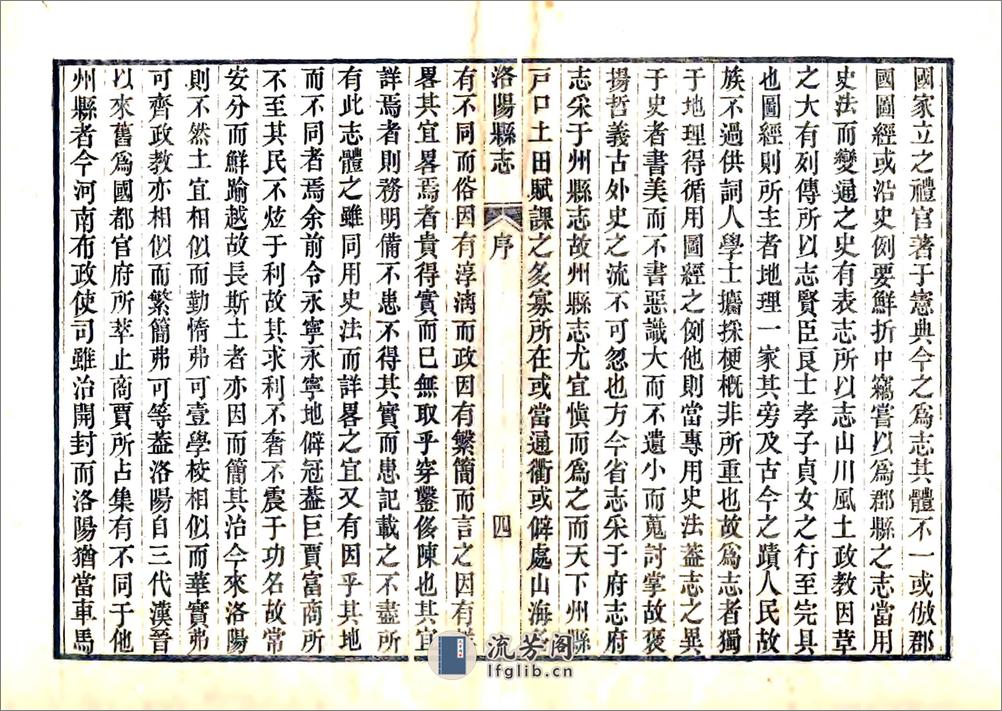 國家立之禮官著于憲典今之爲志其體不一或倣郡
國圖經或沿史例要鮮折中竊嘗以爲郡縣之志當用
史法而變通之史有表志所以志山川風土政教因革
之大有列傳所以志賢臣良士孝子貞女之行至完具
也圖經則所主者地理一家其旁及古今之蹟人民故
族不過供詞人學士攟採梗概非所重也故爲志者獨
于地理得循用圖經之例他則當專用史法葢志之異
于史者書美而不書惡識大而不遺小而蒐討掌故褒
揚哲義古外史之流不可忽也方今省志采于府志府
志采于州縣志故州縣志尤宜愼而爲之而天下州縣
戸口土田賦課之多寡所在或當通衢或僻處山海
洛陽縣志 序 四
有不同而俗因有淳漓而政因有繁簡而言之因有詳
畧其宜畧焉者貴得實而已無取乎穿鑿後陳也其宜
詳焉者則務明備不患不得其實而患記載之不盡所
有此志體之雖同用史法而詳畧之宜又有因乎其地
而不同者焉余前令永寧永寧地僻冠葢巨賈富商所
不至其民不炫于利故其求利不奢不震于功名故常
安分而鮮踰越故長斯土者亦因而簡其治今來洛陽
則不然土宜相似而勤惰弗可壹學校相似而華實弗
可齊政教亦相似而繁簡弗可等葢洛陽自三代漢晉
以來舊爲國都官府所萃止商賈所占集有不同于他
州縣者今河南布政使司雖治開封而洛陽猶當車馬
流芳阁
lfglib.cn